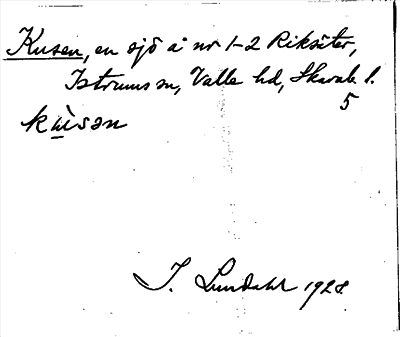 Kusen, en sjö å nr 1-2 Riksäter,
Istrums sn, Valle hd, Skarab. l.
5
kùsən
I. Lundahl 1928